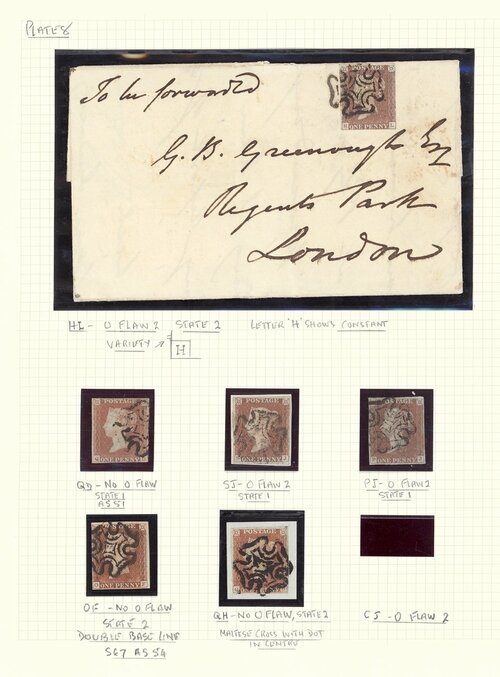 PLATE 8
To be forwarded
POSTAGE
ONE PENNY
G. B. Greenough Esq
Regents Park
London
HL - O FLAW 2 STATE 2 LETTER 'H' SHOWS CONSTANT
VARIETY → H
POSTAGE POSTAGE POSTAGE
ONE PENNY ONE PENNY ONE PENNY
QD - NO O FLAW SJ - O FLAW 2 PJ - O FLAW 2
STATE 1 STATE 1 STATE 1
AS51
POSTAGE
ONE PENNY
OF - NO O FLAW QH - NO O FLAW, STATE 2 CJ - O FLAW 2
STATE 2 MALTESE CROSS WITH DOT
DOUBLE BASE LINE IN CENTRE
SG7 AS54